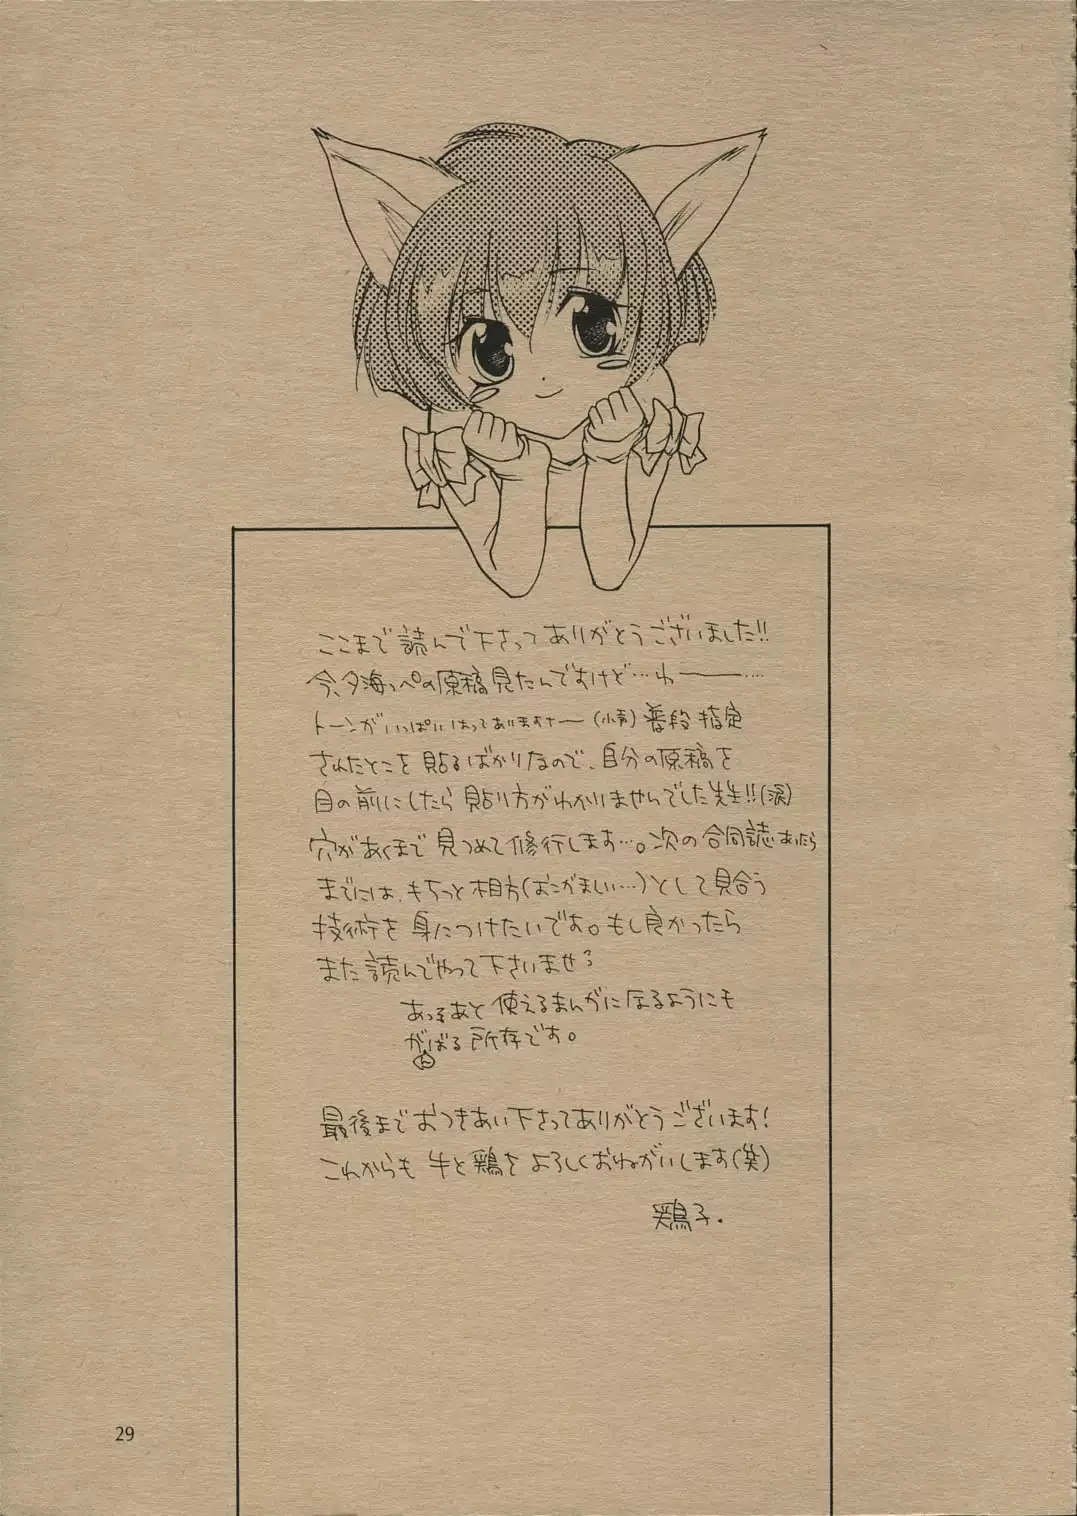 ここまで読んで下さってありがとうございました!!
今、夕海っぺの原稿見たんですけど…わ――…
トーンがいっぱいはってありますナー(小声)普段指定
されたとこを貼るばかりなので、自分の原稿を
目の前にしたら貼り方がわかりませんでした先生!!(涙)
穴があくまで見つめて修行します…。次の合同誌あたら
までには、もちっと相方(おこがましい…)として見合う
技術を身につけたいです。もし良かったら
また読んでやって下さいませ?
あっ、あと使えるまんがになるようにも
がんばる所存です。
最後までおつきあい下さってありがとうございます!
これからも牛と鶏をよろしくおねがいします(笑)
鶏子.
29